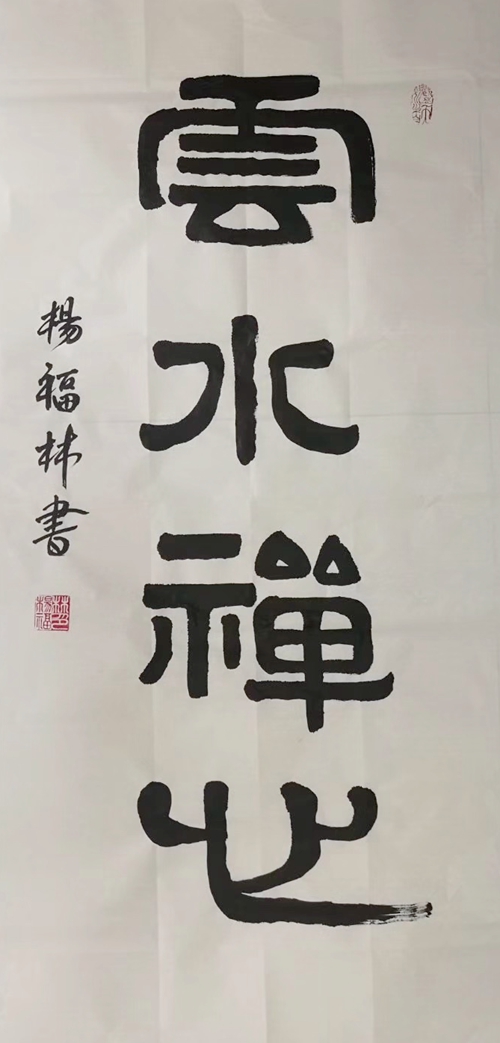 雲水禪心
楊福林書